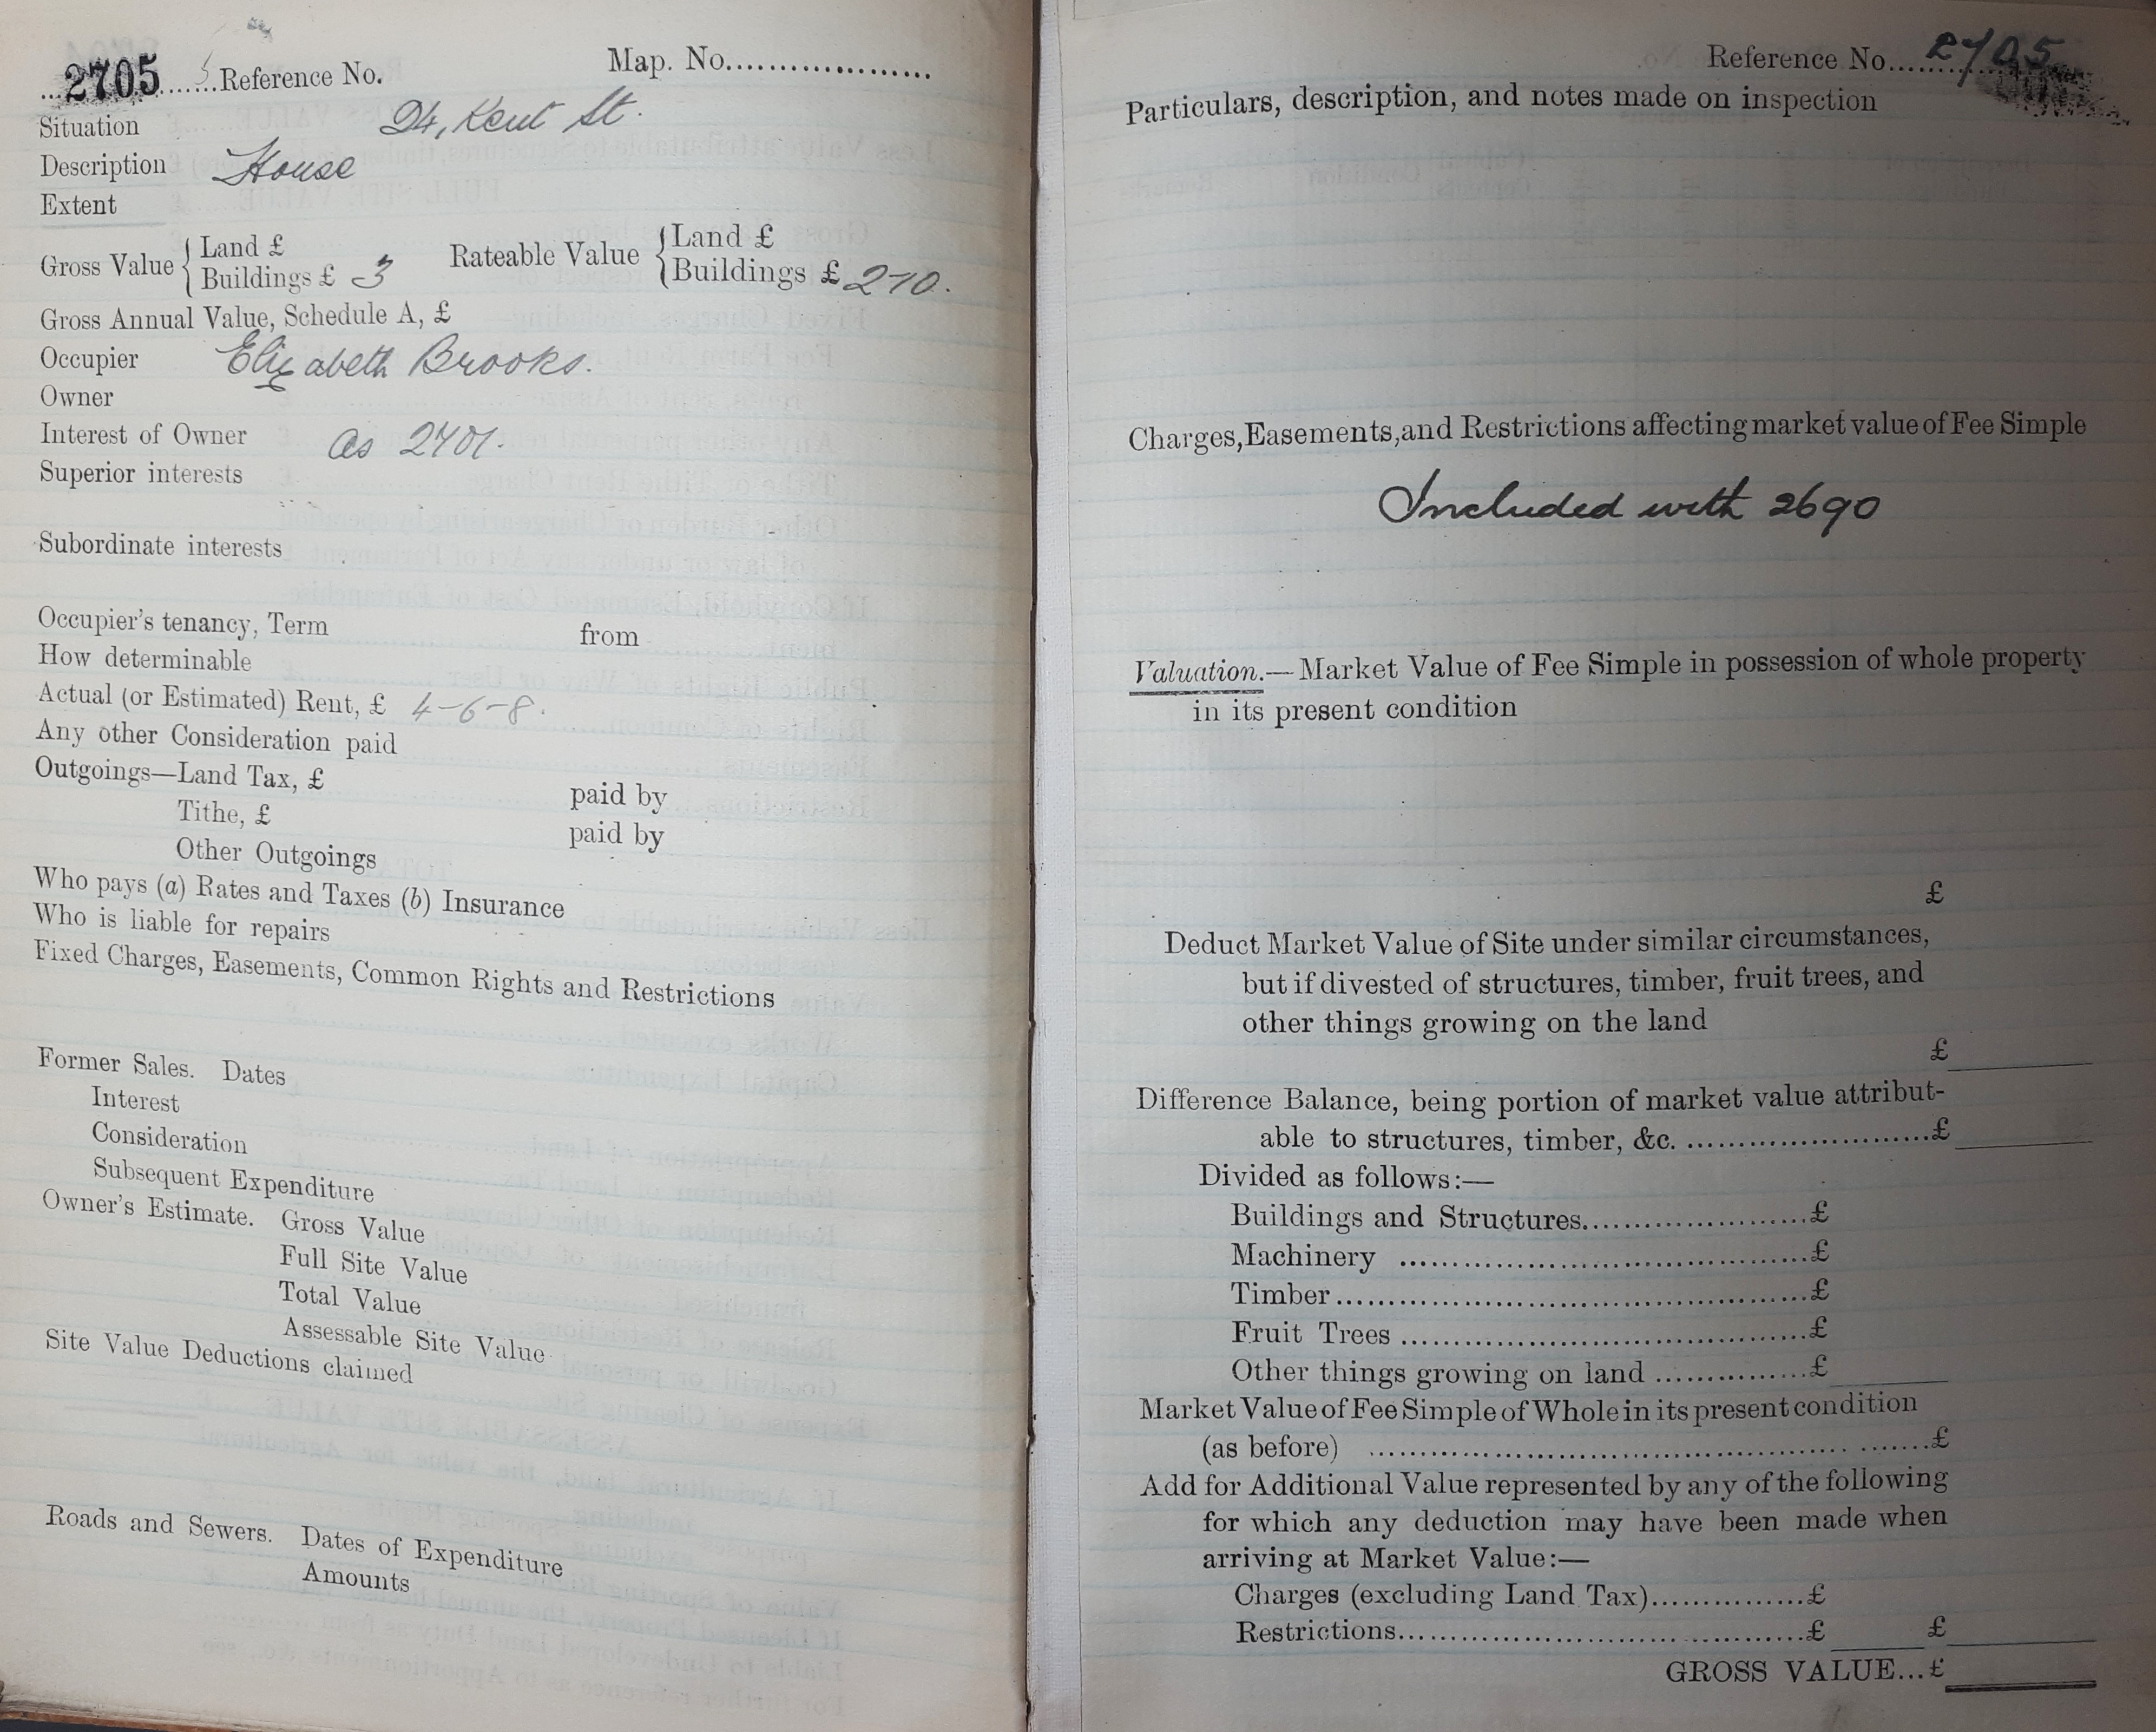 ...2705......Reference No.
Map. No....................
Situation 24, Kent St.
Description House
Extent
Gross Value { Land £
Buildings £ 3
Rateable Value { Land £
Buildings £ 2-10.
Gross Annual Value, Schedule A, £
Occupier Elizabeth Brooks.
Owner
Interest of Owner as 2701.
Superior interests
Subordinate interests
Occupier's tenancy, Term from
How determinable
Actual (or Estimated) Rent, £ 4-6-8.
Any other Consideration paid
Outgoings—Land Tax, £ paid by
Tithe, £ paid by
Other Outgoings
Who pays (a) Rates and Taxes (b) Insurance
Who is liable for repairs
Fixed Charges, Easements, Common Rights and Restrictions
Former Sales. Dates
Interest
Consideration
Subsequent Expenditure
Owner's Estimate. Gross Value
Full Site Value
Total Value
Assessable Site Value
Site Value Deductions claimed
Roads and Sewers. Dates of Expenditure
Amounts
Reference No....2705
Particulars, description, and notes made on inspection
Charges, Easements, and Restrictions affecting market value of Fee Simple
Included with 2690
Valuation.—Market Value of Fee Simple in possession of whole property
in its present condition
£
Deduct Market Value of Site under similar circumstances,
but if divested of structures, timber, fruit trees, and
other things growing on the land
£
Difference Balance, being portion of market value attribut-
able to structures, timber, &c. ..........................£
Divided as follows:—
Buildings and Structures.......................£
Machinery .......................................£
Timber..............................................£
Fruit Trees ........................................£
Other things growing on land ...............£
Market Value of Fee Simple of Whole in its present condition
(as before) ......................................................£
Add for Additional Value represented by any of the following
for which any deduction may have been made when
arriving at Market Value:—
Charges (excluding Land Tax)...............£
Restrictions.........................................£ £
GROSS VALUE...£